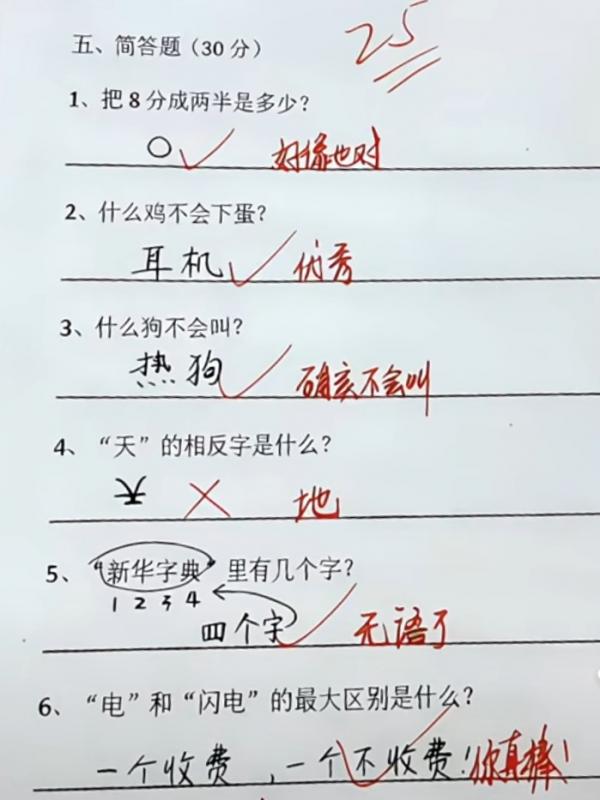 五、简答题（30分） 25
1、把8分成两半是多少？
○ 好像也对
2、什么鸡不会下蛋？
耳机 优秀
3、什么狗不会叫？
热狗 确实不会叫
4、“天”的相反字是什么？
地
5、“新华字典”里有几个字？
1 2 3 4
四个字 无语了
6、“电”和“闪电”的最大区别是什么？
一个收费，一个不收费！你真棒！